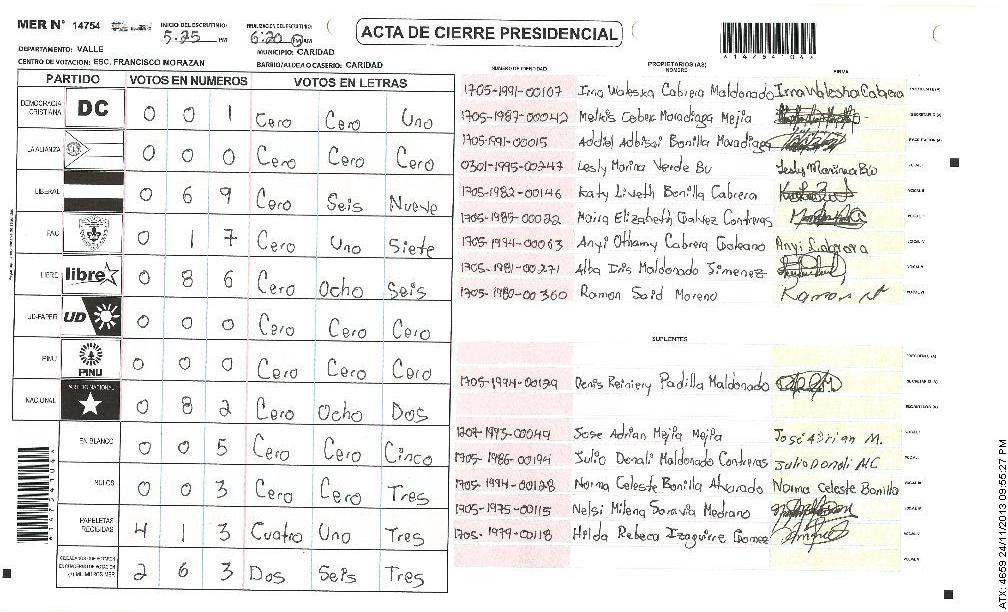 MER N° 14754
INICIO DEL ESCRUTINIO:
5:25 PM
FINALIZACION DEL ESCRUTINIO:
6:20 PM
ACTA DE CIERRE PRESIDENCIAL
*14754104*
DEPARTAMENTO: VALLE
MUNICIPIO: CARIDAD
CENTRO DE VOTACION: ESC. FRANCISCO MORAZAN
BARRIO/ALDEA O CASERIO: CARIDAD
PARTIDO VOTOS EN NUMEROS VOTOS EN LETRAS
DEMOCRACIA CRISTIANA DC 0 0 1 Cero Cero Uno
LA ALIANZA 0 0 0 Cero Cero Cero
LIBERAL 0 6 9 Cero Seis Nueve
PAC 0 1 7 Cero Uno Siete
LIBRE libre 0 8 6 Cero Ocho Seis
UD-FAPER UD 0 0 0 Cero Cero Cero
PINU PINU 0 0 0 Cero Cero Cero
NACIONAL PARTIDO NACIONAL 0 8 2 Cero Ocho Dos
EN BLANCO 0 0 5 Cero Cero Cinco
NULOS 0 0 3 Cero Cero Tres
PAPELETAS RECIBIDAS 4 1 3 Cuatro Uno Tres
2 6 3 Dos Seis Tres
NUMERO DE IDENTIDAD PROPIETARIOS (AS) NOMBRE FIRMA
1705-1991-00107 Irma Waleska Cabrera Maldonado Irma Waleska Cabrera PRESIDENTE(A)
1705-1987-00042 Melkis Cebex Moradiaga Mejia SECRETARIO (A)
1705-1991-00015 Addiel Adbisai Bonilla Moradiaga ESCRUTADOR (A)
0301-1995-00247 Lesly Marina Verde Bu VOCAL I
1705-1982-00146 Katy Liveth Bonilla Cabrera VOCAL II
1705-1985-00022 Maira Elizabeth Galvez Contreras
1705-1994-00063 Anyi Othamy Cabrera Galeano Anyi Cabrera
1705-1981-00271 Alba Iris Maldonado Jimenez
1705-1980-00360 Ramon Said Moreno Ramon
SUPLENTES
PRESIDENTE (A)
1705-1994-00129 Denis Reiniery Padilla Maldonado SECRETARIO (A)
ESCRUTADOR (A)
1707-1993-00049 Jose Adrian Mejia Mejia José Adrian M. VOCAL I
1705-1986-00194 Julio Denali Maldonado Contreras Julio Donali MC
1705-1994-00128 Norma Celeste Bonilla Alvarado Norma Celeste Bonilla
1705-1975-00115 Nelsi Milena Saravia Medrano
1705-1979-00118 Hilda Rebeca Izaguirre Gomez
ATX: 4659 24/11/2013 09:55:27 PM